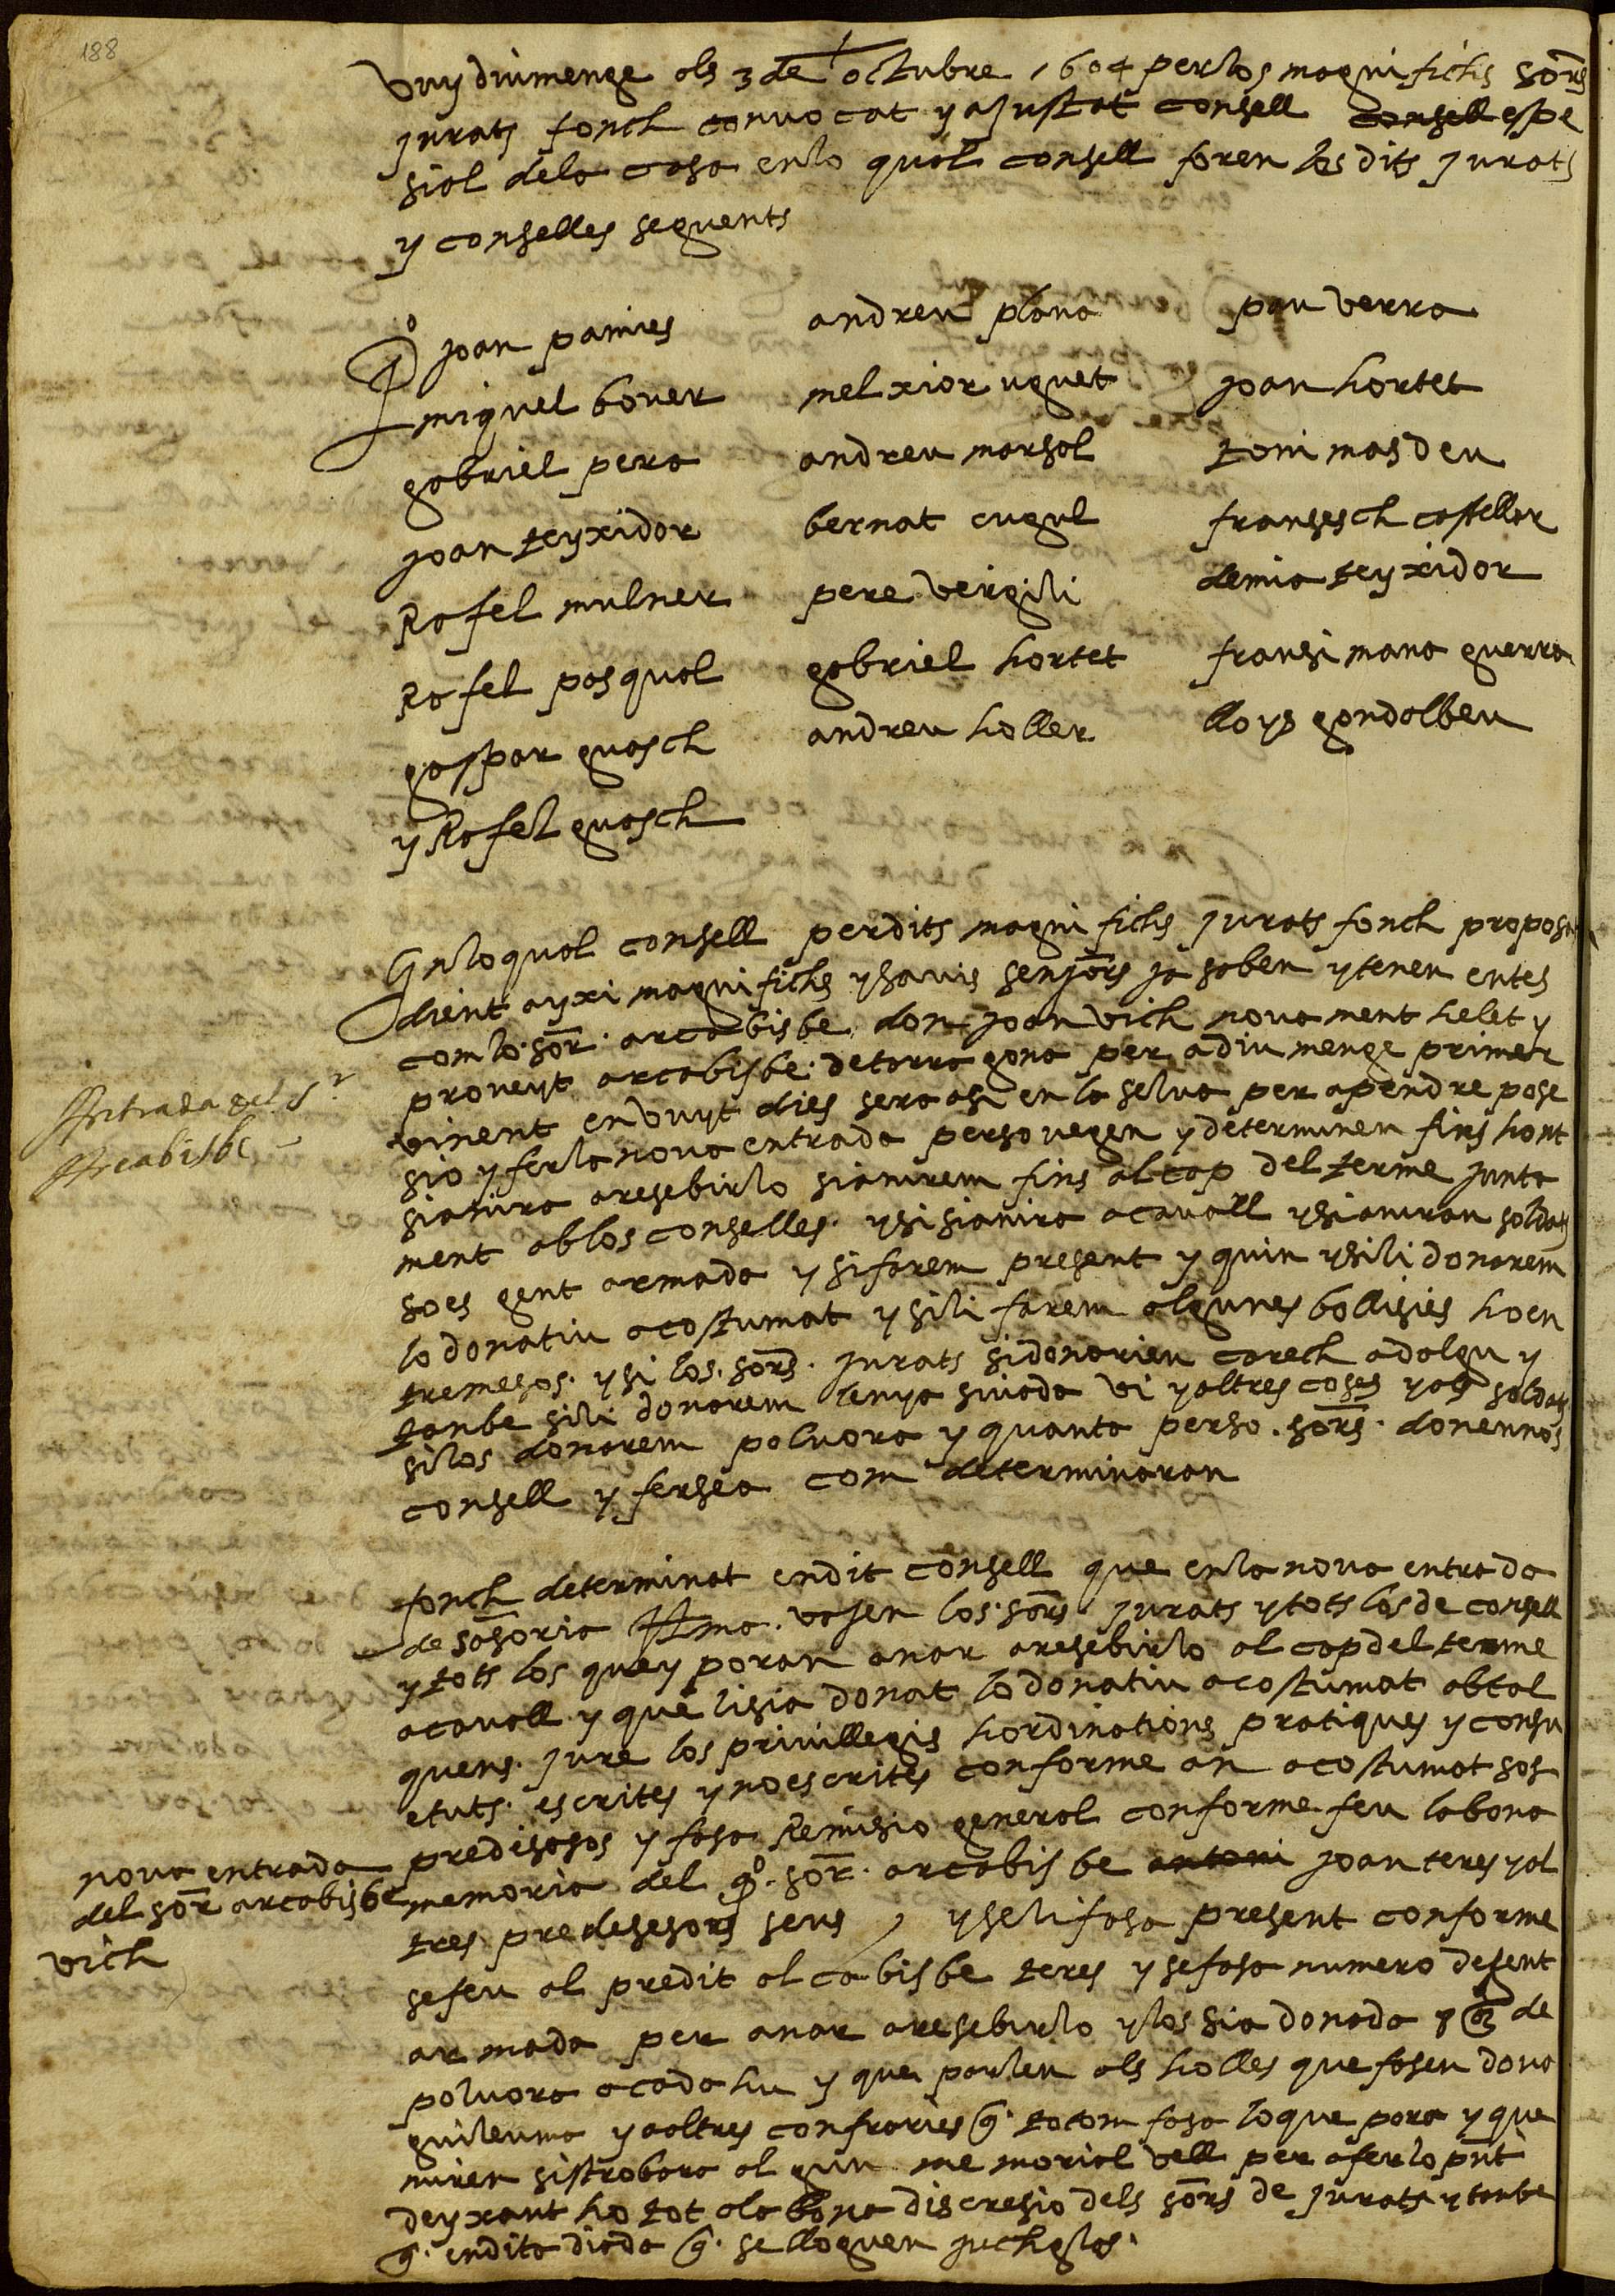 188
vuy diumenge als 3 de octubre 1604 per los magnifichs sors
jurats fonch convocat y ajustat consell consell espe
sial dela casa enlo qual consell foren los dits jurats
y conselles seguents
joan pamies
miquel bover
gabriel pera
joan teyxidor
Rafel mulner
Rafel pasqual
gaspar guasch
y Rafel guasch
andreu plana
melxior uguet
andreu marsal
bernat cugul
pere vergili
gabriel hortet
andreu holler
pau verra
joan hortet
toni masdeu
fransesch castellar
demia teyxidor
fransi mana guerra
lloys gondolbeu
Enloqual consell perdits magnifichs jurats fonch proposa
dient ayxi magnifichs ysavis senjors ja saben ytenen entes
com lo sor arcabisbe don joan vich novament helet y
proveyt arcabisbe detarragona per adiumenge primer
vinent en vuyt dies sera asi en la selva per apendre pose
sio y ferla nova entrada perso vegen ydeterminen fins hont
sianira aresebirlo sianirem fins alcap del terme junta
ment ablos conselles ysi sianira acavall ysianiran soldats
soes gent armada y sifarem present y quin ysili donarem
lo donatiu acostumat ysili farem algunes bollisies hoen
tremesos ysi los sors jurats sidonarien carech adalgu y
tanbe sili donarem lenya sivada vi yaltres coses yals soldats
silos donarem polvora y quanta perso sors donennos
consell y fersea com determinaran
Entrada del Sr
Arcabisbe
fonch determinat endit consell que enla nova entrada
de sasoria Illma vajen los sors jurats ytots losde consell
ytots los quey poran anar aresebirlo al capdel terme
acavall y que lisia donat lo donatiu acostumat abtal
quens jure los privillegis hordinations pratiques y consu
etuts escrites ynoescrites conforme an acostumat sos
predisesos y fasa Remisio general conforme feu labona
memoria del qo sor arcabisbe antoni joan teres yal
tres predesesors seus, yselifasa present conforme
sefeu al predit alcabisbe teres ysefasa numero desent
armada per anar aresebirlo ylos sia donada de
polvora acada hu y que parlen als holles que fasen dona
guileuma yaaltres confraries q totom fasa loque pora yque
miren sistrobara al gun memorial vell per aferlo pnt
deyxant ho tot ala bona discresio dels sors de jurats ytanbe
q endita diada q se lloguen juchglas
nova entrada
del sor arcabisbe
vich